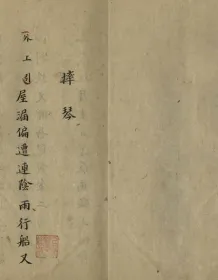 摔琴
上園
屋漏偏遭連陰雨行船又